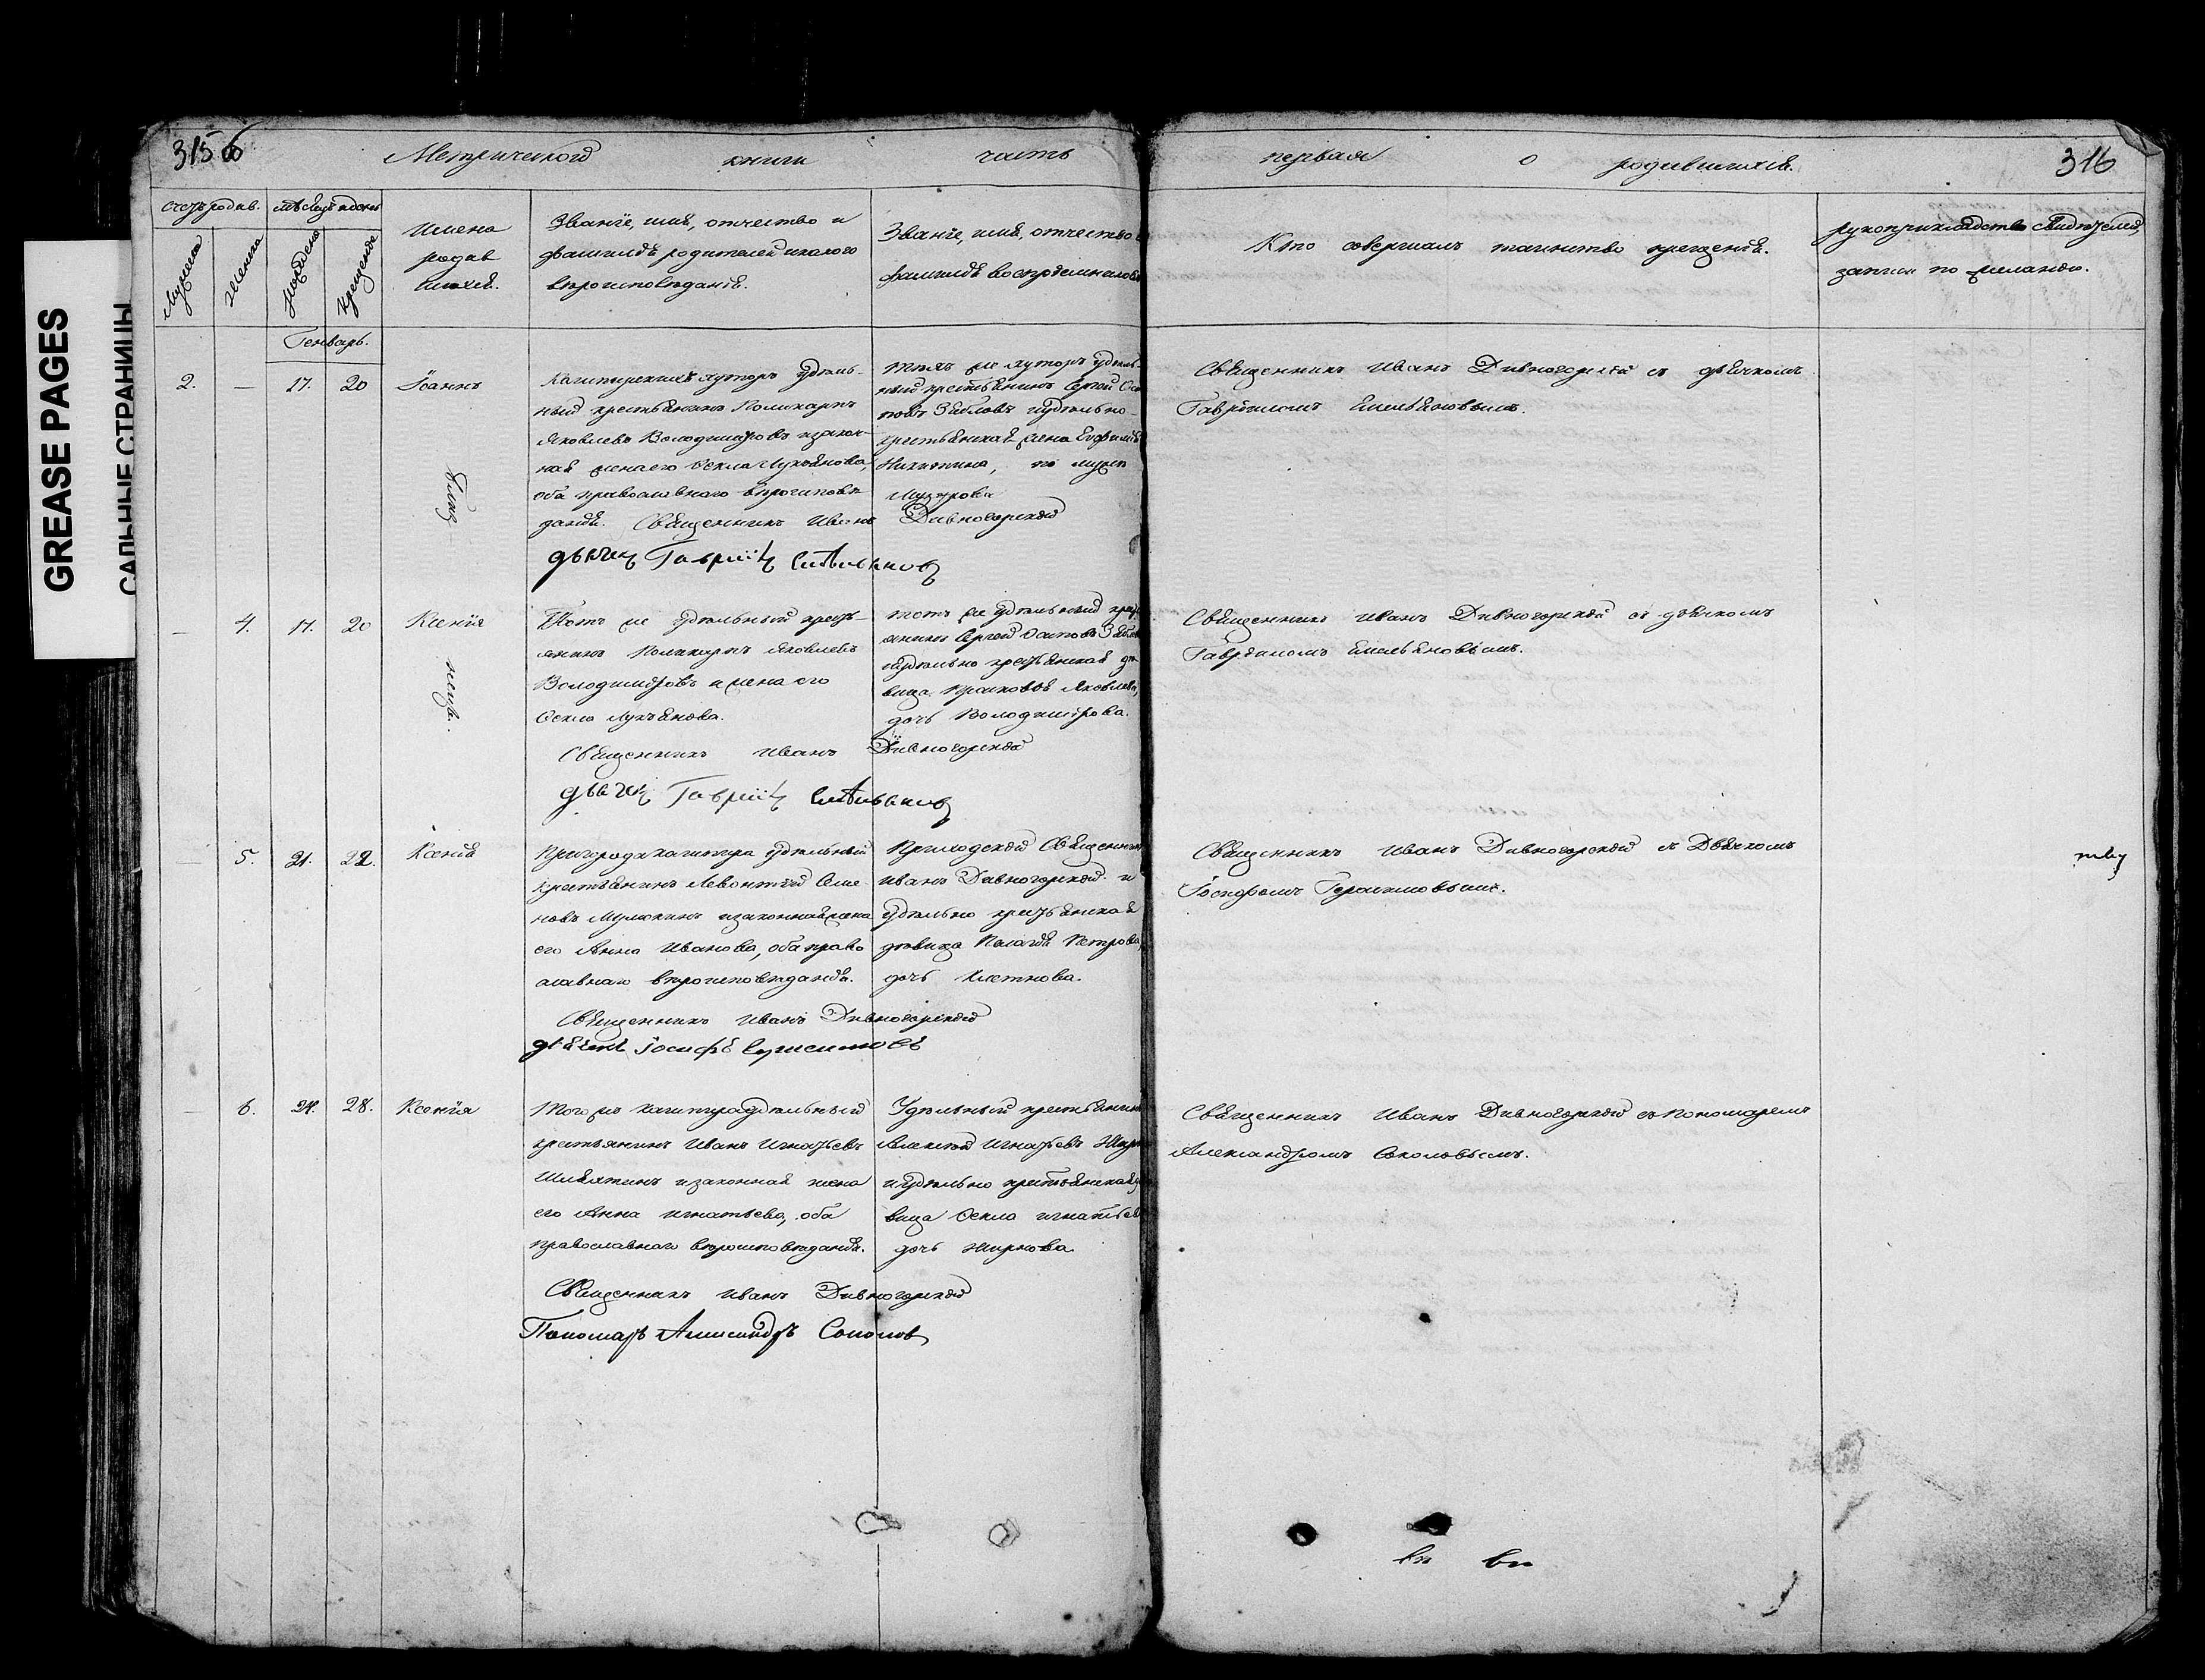 GREASE PAGES
САЛЬНЫЕ СТРАНИЦЫ
315 об
Метрической книги часть первая о родившихся.
316
Счетъ родив.
Мужеска
Женска
мѣсяцъ и день
рожденія
крещенія
Имена
родив
шихся.
Званіе, имя, отчество и
фамилія родителей и какого
вѣроисповѣданія.
Званіе, имя, отчество и
фамилія воспріемниковъ
Кто совершалъ таинство крещенія.
рукоприкладство свидѣтелей
записи по желанію.
Генварь.
2. — 17. 20 Іоаннъ
удѣль-
ный крестьянинъ Поликарпъ
Яковлевъ Володимировъ и закон-
ная жена его Ѳекла Лукьянова,
оба православнаго вѣроисповѣ
данія. Священникъ Иванъ Дивногорскій
дьячекъ Гавріилъ Емельяновъ
того же хутора удѣль-
ный крестьянинъ Сергей Оси
повъ Зябловъ и удѣльно-
крестьянская жена Евфимія
Никитина, по мужѣ
Священникъ Иванъ Дивногорскій съ дьячкомъ
Гавріиломъ Емельяновымъ.
близ
нецы.
— 4. 17. 20 Ксенія
Тотъ же удѣльный кресть-
янинъ Поликарпъ Яковлевъ
Володимировъ и жена его
Ѳекла Лукьянова.
Священникъ Иванъ Дивногорскій
дьячекъ Гавріилъ Емельяновъ
тотъ же удѣльный кресть
янинъ Сергей Осиповъ Зябловъ
и удѣльно крестьянская дѣ
вица Прасковья Яковлева,
дочь Володимірова.
Священникъ Иванъ Дивногорскій съ дьячкомъ
Гавріиломъ Емельяновымъ.
— 5. 21. 22. Ксенія
Пригорода Кашпира удѣльный
крестьянинъ Левонтій Семе
новъ и законная жена
его Анна Иванова, оба право
славнаго вѣроисповѣданія.
Священникъ Иванъ Дивногорскій
дьячекъ Іосифъ Герасимовъ
Приходскій Священникъ
Иванъ Дивногорскій и
удѣльно крестьянская
дѣвица Пелагія Петрова,
дочь
Священникъ Иванъ Дивногорскій съ Дьячкомъ
Іосифомъ Герасимовымъ.
— 6. 24. 28. Ксенія
Того же Кашпира удѣльный
крестьянинъ Иванъ Игнатьевъ
и законная жена
его Анна Игнатьева, оба
православнаго вѣроисповѣданія.
Священникъ Иванъ Дивногорскій
Пономарь Александръ Соколовъ
Удѣльный крестьянинъ
Алексѣй Игнатьевъ
и удѣльно крестьянская дѣ
вица Ѳекла Игнатьева
дочь Жиркова.
Священникъ Иванъ Дивногорскій съ Пономаремъ
Александромъ Соколовымъ.